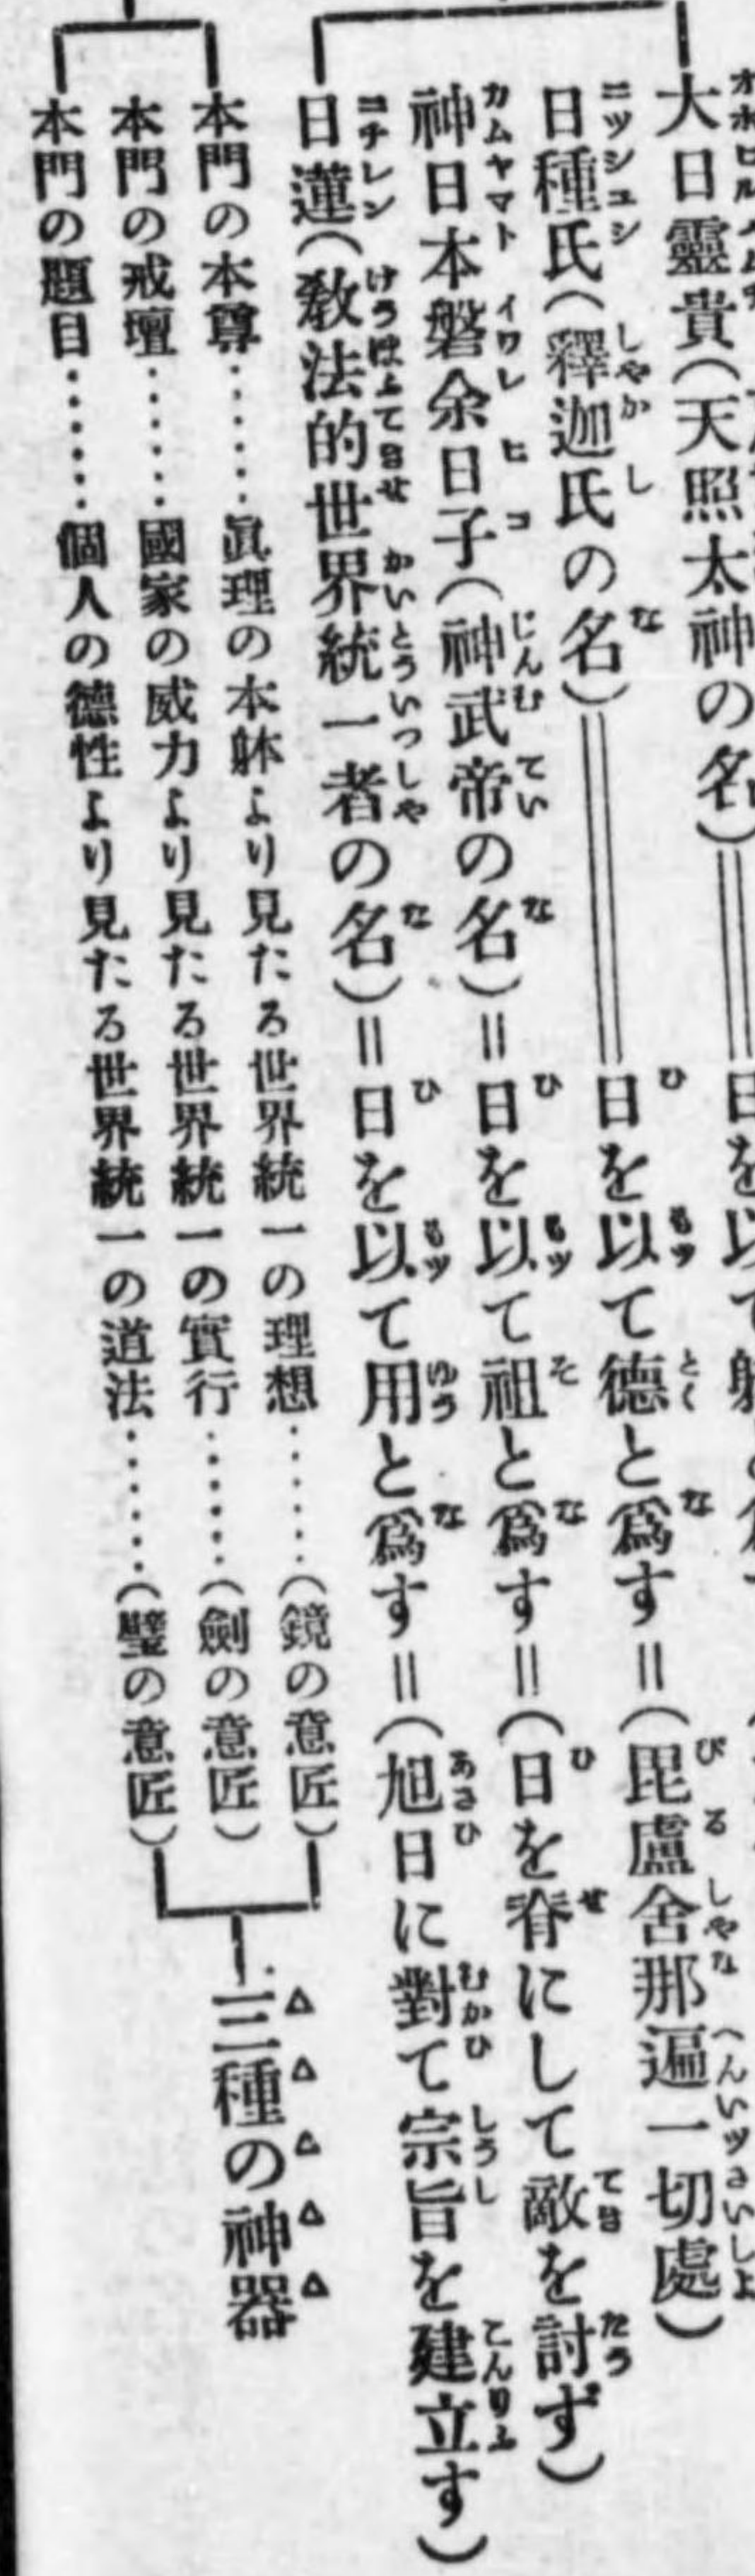 大日靈貴(天照太神の名)＝日を以て
日種氏(釋迦氏の名)＝日を以て德と爲す＝(毘盧舍那遍一切處)
神日本磐余日子(神武帝の名)＝日を以て祖と爲す＝(日を脊にして敵を討ず)
日蓮(敎法的世界統一者の名)＝日を以て用と爲す＝(旭日に對て宗旨を建立す)
本門の本尊・・・・・・眞理の本躰より見たる世界統一の理想・・・・・・(鏡の意匠)
本門の戒壇・・・・・・國家の威力より見たる世界統一の實行・・・・・・(劍の意匠)
本門の題目・・・・・・個人の德性より見たる世界統一の道法・・・・・・(璧の意匠)
三種の神器